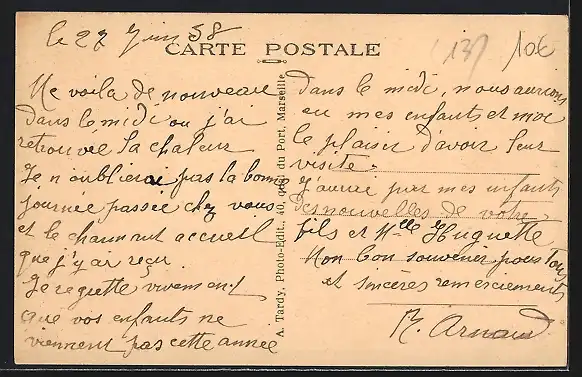 le 27 Juin 58
CARTE POSTALE
(13)
10€
Me voila de nouveau
dans le midi ou j'ai
retrouvé la chaleur
Je n'oublierai pas la bonne
journée passée chez vous
et le charmant accueil
que j'y ai reçu.
Je regrette vivement
que vos enfants ne
viennent pas cette année
A. Tardy, Photo-Edit., 40, quai du Port, Marseille
dans le midi, nous aurions
eu mes enfants et moi
le plaisir d'avoir leur
visite.
J'aurai par mes enfants
des nouvelles de votre
fils et Melle Huguette
Mon bon souvenir pour tous
et sincères remerciements
R. Arnaud